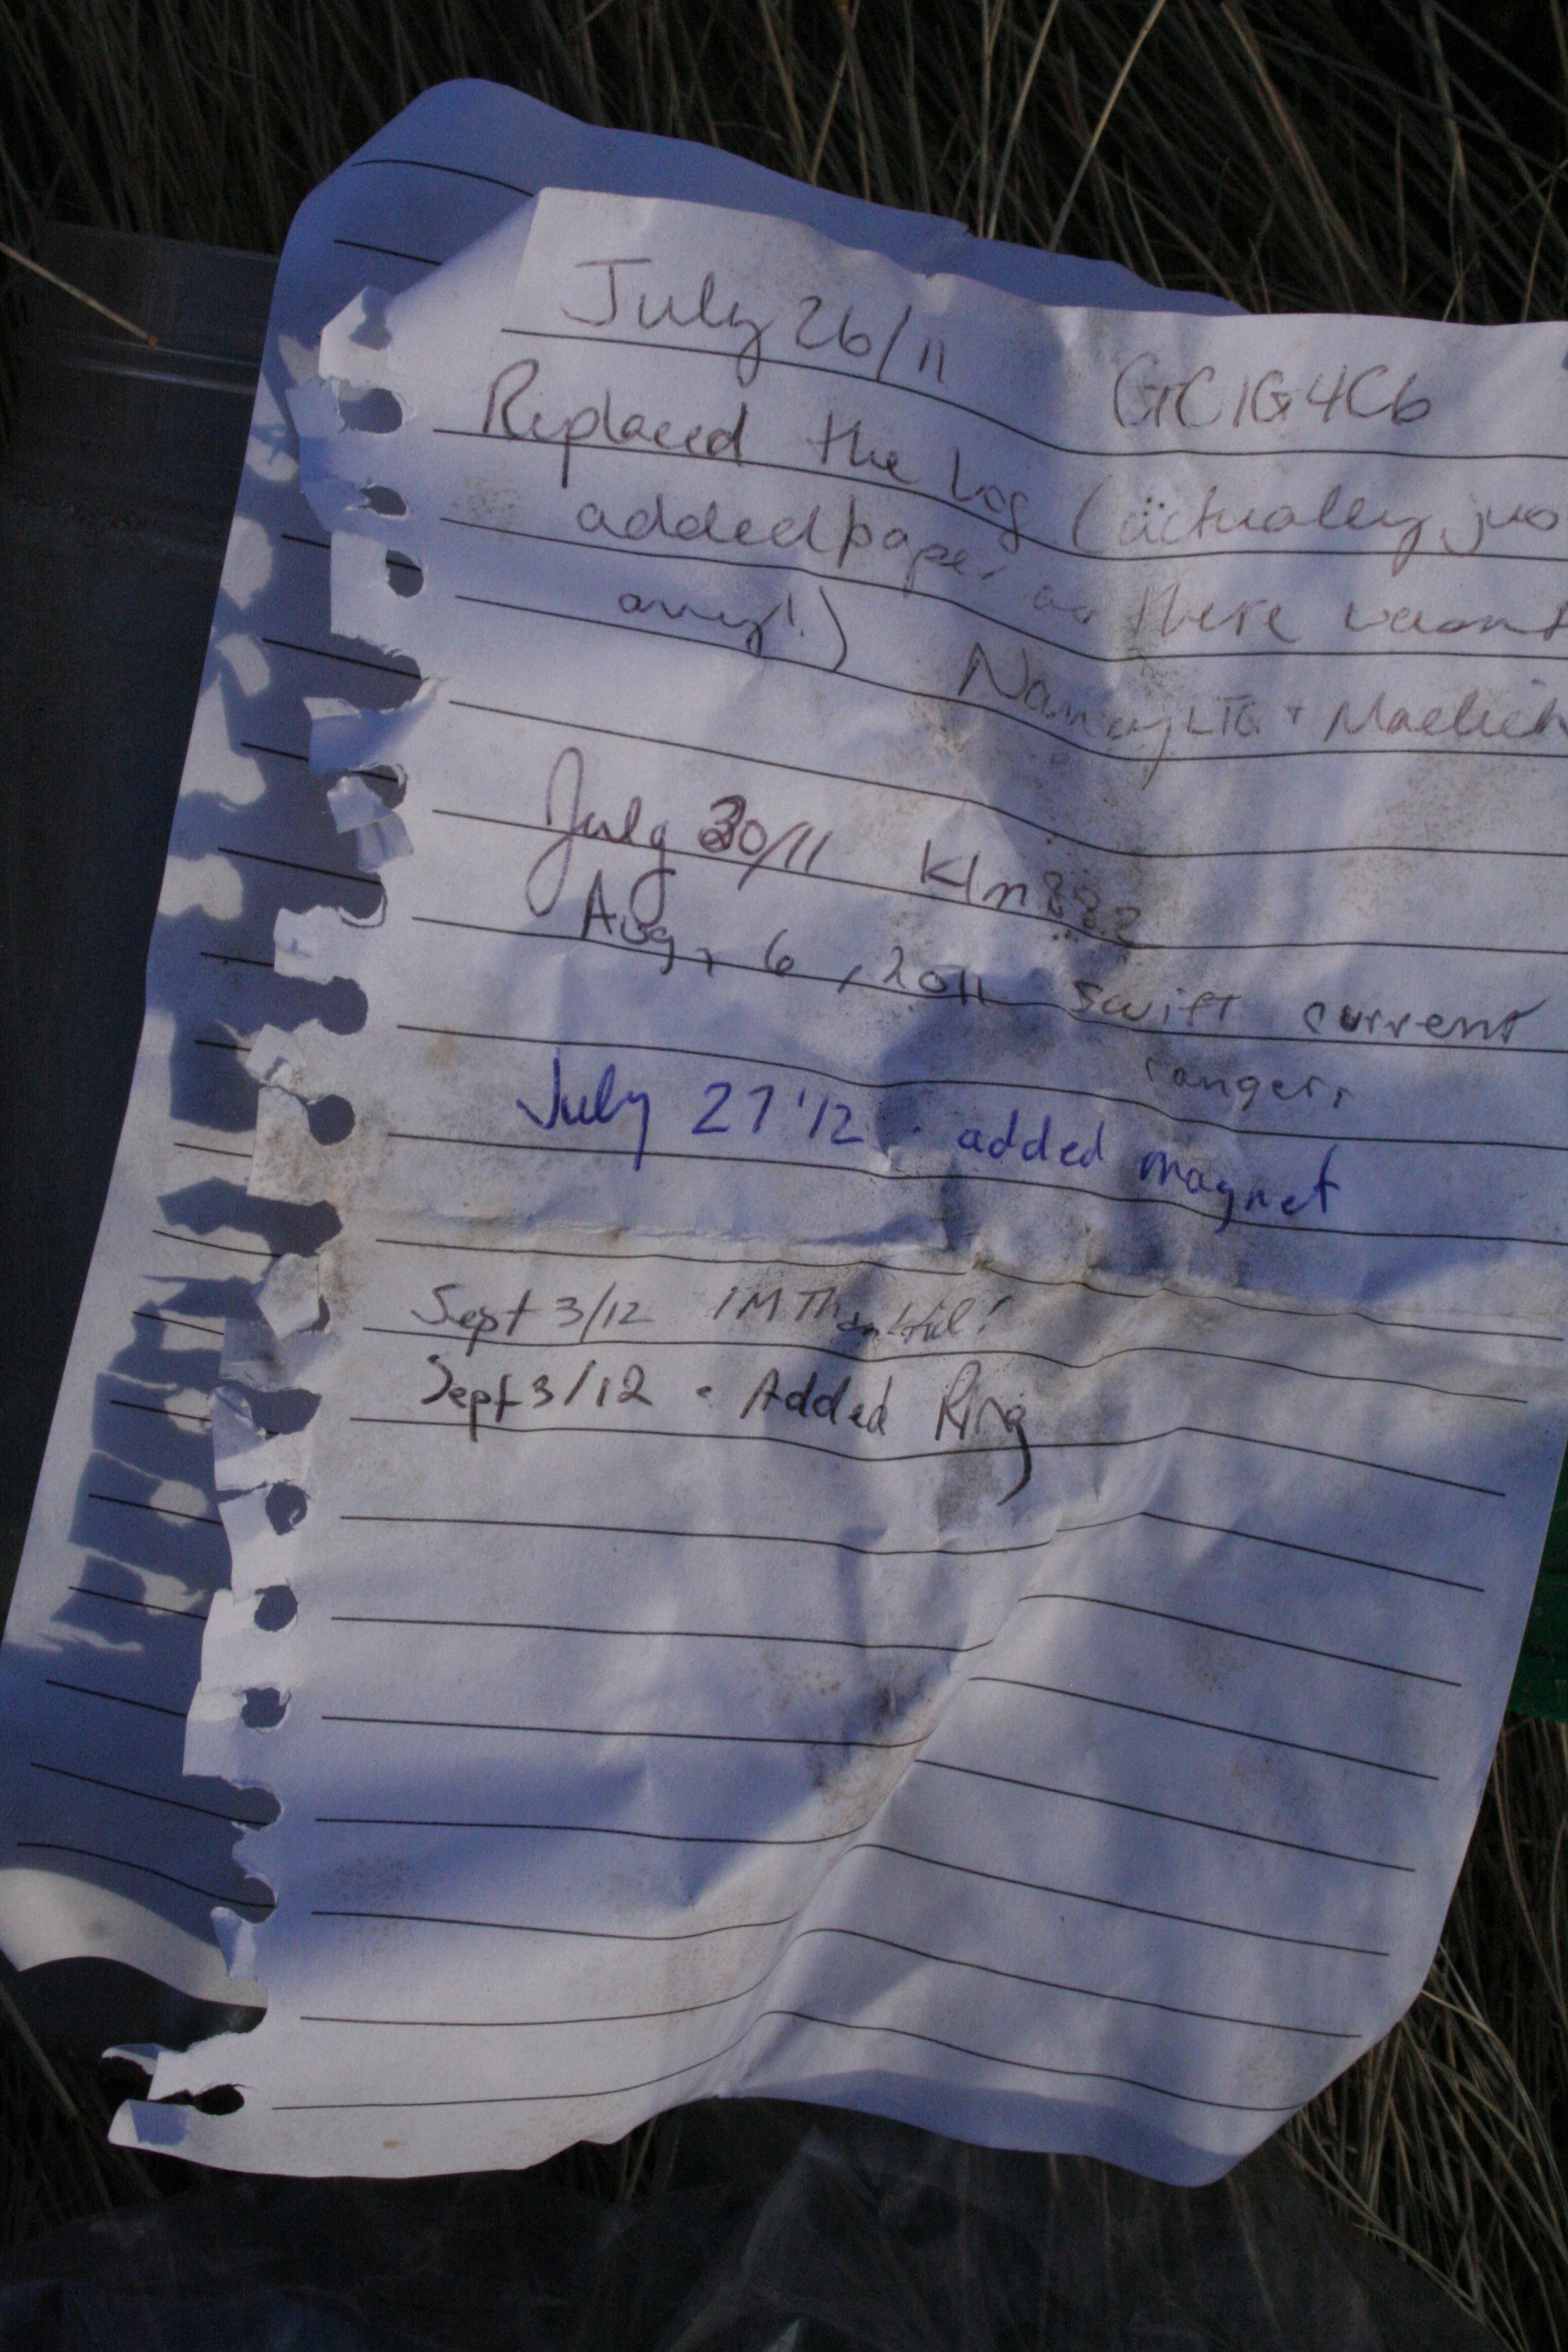 July 26/11
GC1G4C6
Replaced the Log (actually jus
added paper as there wasnt
any!) Nancy LTG + Maelieh
July 30/11 Klm888
Aug, 6, 2011 swift current
rangers
July 27 '12 · added magnet
Sept 3/12 IM Thankful!
Sept 3/12 - Added Ring